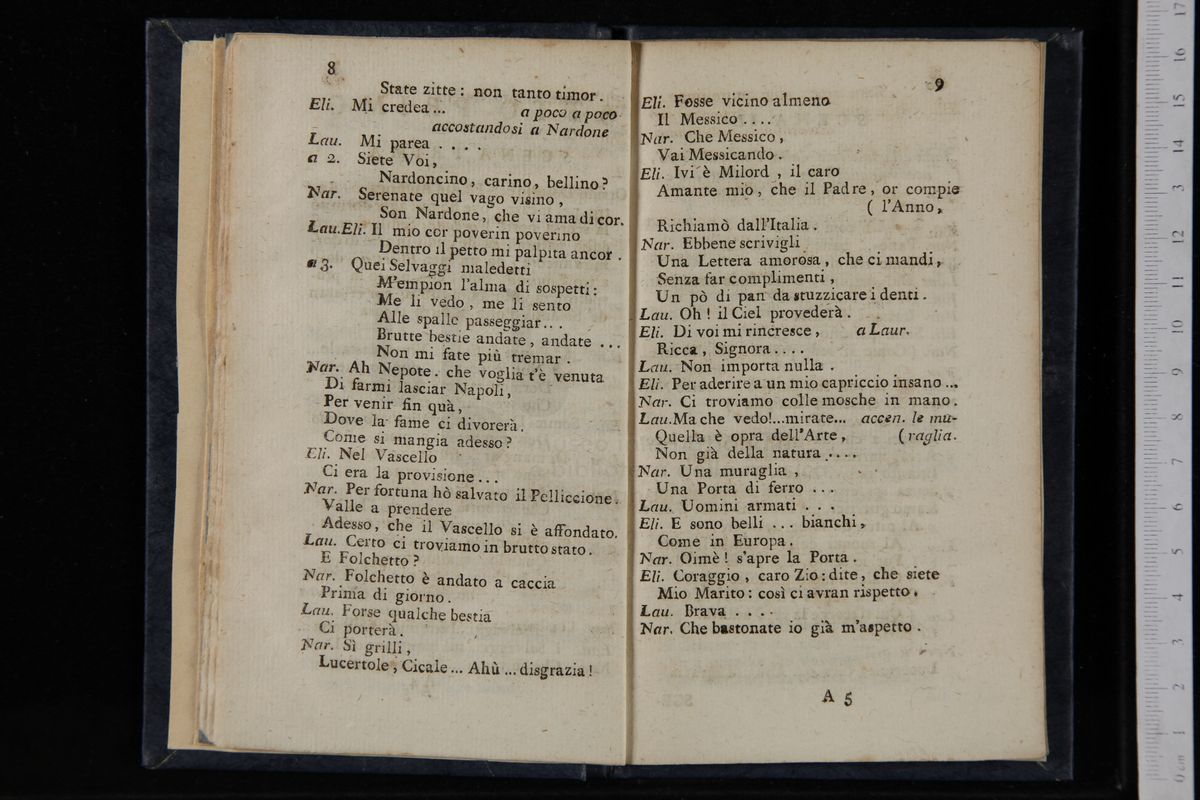 8
State zitte : non tanto timor .
Eli. Mi credea ... a poco a poco
accostandosi a Nardone
Lau. Mi parea . . . .
a 2. Siete Voi,
Nardoncino, carino, bellino?
Nar. Serenate quel vago visino ,
Son Nardone, che vi ama di cor.
Lau.Eli. Il mio cor poverin poverino
Dentro il petto mi palpita ancor .
a 3. Quei Selvaggi maledetti
M'empion l'alma di sospetti :
Me li vedo , me li sento
Alle spalle passeggiar.. .
Brutte bestie andate , andate ...
Non mi fate più tremar .
Nar. Ah Nepote . che voglia t'è venuta
Di farmi lasciar Napoli ,
Per venir fin quà,
Dove la fame ci divorerà .
Come si mangia adesso ?
Eli. Nel Vascello
Ci era la provisione ...
Nar. Per fortuna hò salvato il Pelliccione .
Valle a prendere
Adesso, che il Vascello si è affondato.
Lau. Certo ci troviamo in brutto stato .
E Folchetto ?
Nar. Folchetto è andato a caccia
Prima di giorno .
Lau. Forse qualche bestia
Ci porterà .
Nar. Sì grilli ,
Lucertole , Cicale ... Ahù ... disgrazia !
9
Eli. Fosse vicino almeno
Il Messico . . . .
Nar. Che Messico ,
Vai Messicando .
Eli. Ivi è Milord , il caro
Amante mio , che il Padre , or compie
( l'Anno ,
Richiamò dall'Italia .
Nar. Ebbene scrivigli
Una Lettera amorosa , che ci mandi ,
Senza far complimenti ,
Un pò di pan da stuzzicare i denti .
Lau. Oh ! il Ciel provederà .
Eli. Di voi mi rincresce , a Laur.
Ricca , Signora . . . .
Lau. Non importa nulla .
Eli. Per aderire a un mio capriccio insano ...
Nar. Ci troviamo colle mosche in mano .
Lau. Ma che vedo!...mirate... accen. le mu-
Quella è opra dell'Arte , (raglia.
Non già della natura . . . .
Nar. Una muraglia ,
Una Porta di ferro . . .
Lau. Uomini armati . . .
Eli. E sono belli ... bianchi ,
Come in Europa .
Nar. Oimè ! s'apre la Porta .
Eli. Coraggio , caro Zio : dite , che siete
Mio Marito : così ci avran rispetto .
Lau. Brava . . . .
Nar. Che bastonate io già m'aspetto .
A 5
0 cm 1 2 3 4 5 6 7 8 9 10 11 12 13 14 15 16 17